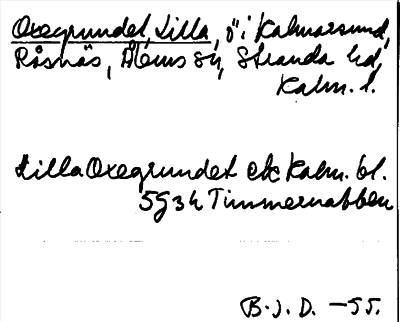 Oxegrundet, Lilla, ö i Kalmarsund,
Råsnäs, Ålems sn, Stranda hd,
Kalm. l.
Lilla Oxegrundet ek Kalm. bl.
5G3h Timmernabben
B.J.D. -55.